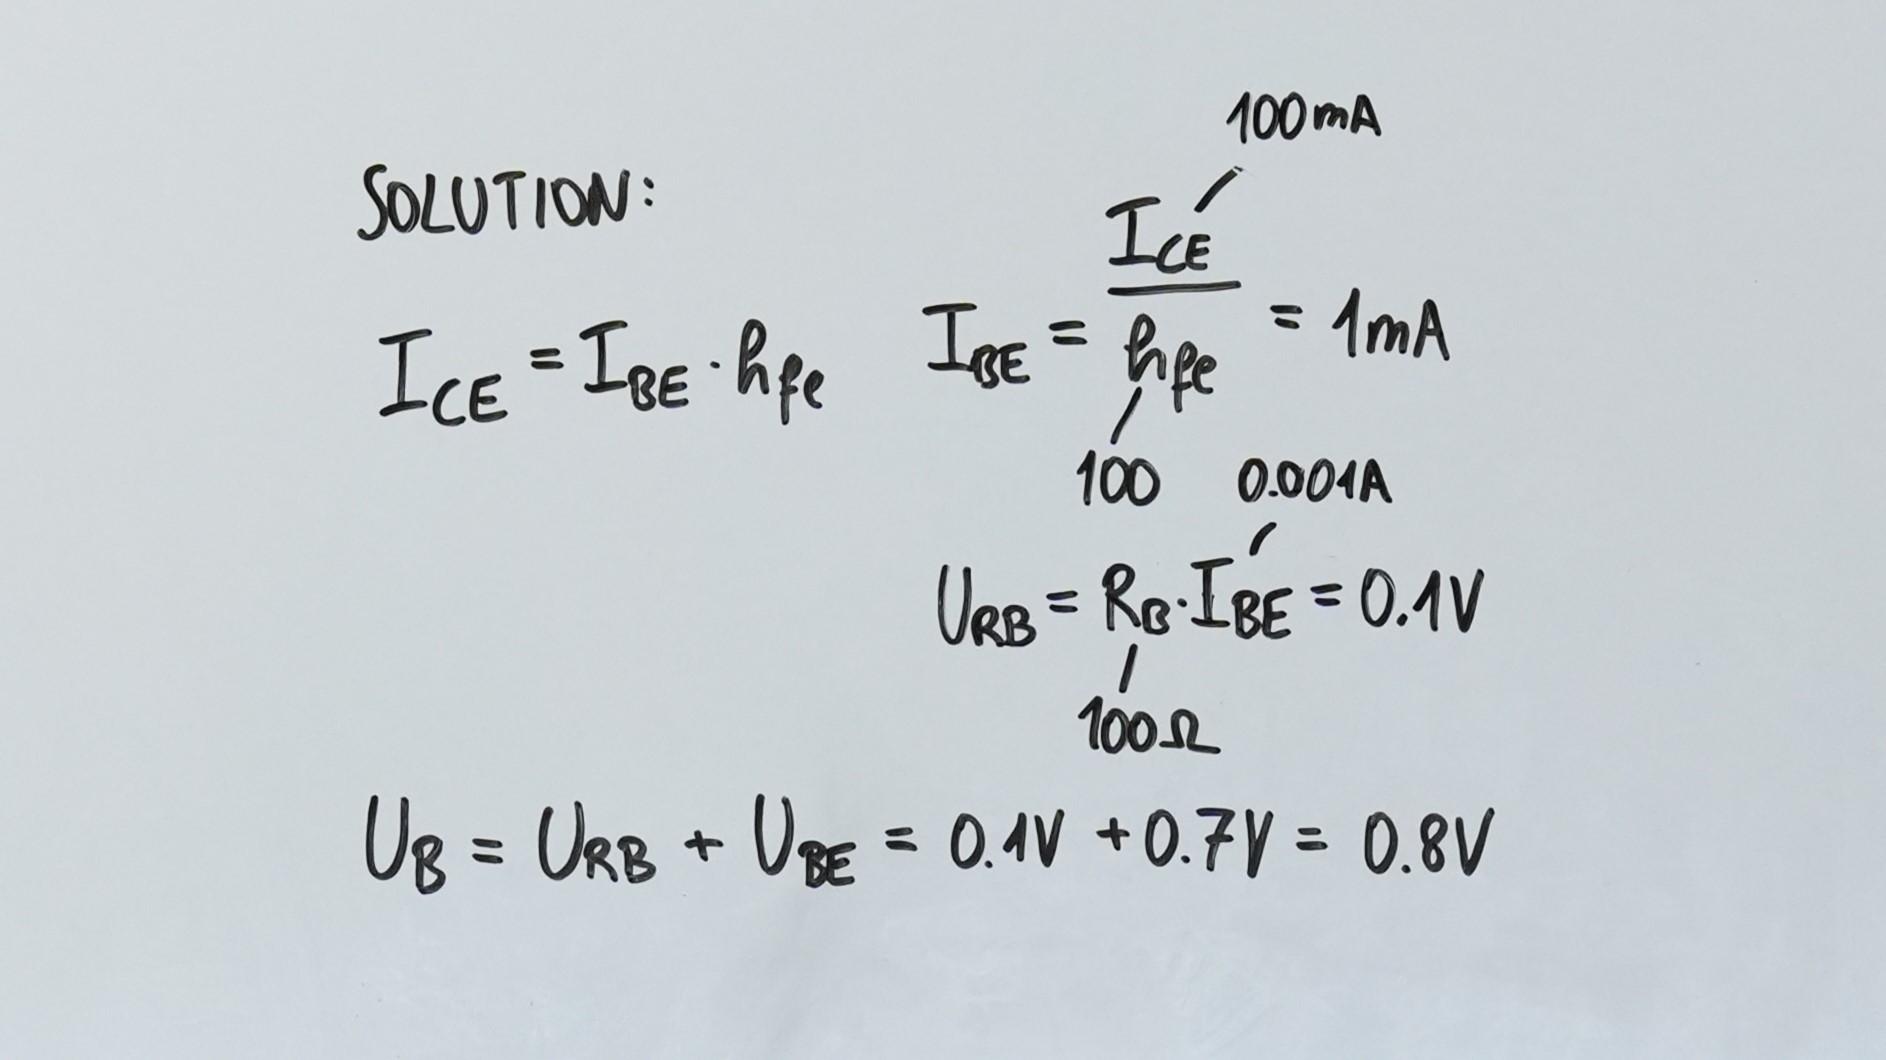 SOLUTION:
I_CE = I_BE · hfe
100mA
I_BE = I_CE / hfe = 1mA
100
0.001A
U_RB = R_B · I_BE = 0.1V
100Ω
U_B = U_RB + U_BE = 0.1V + 0.7V = 0.8V